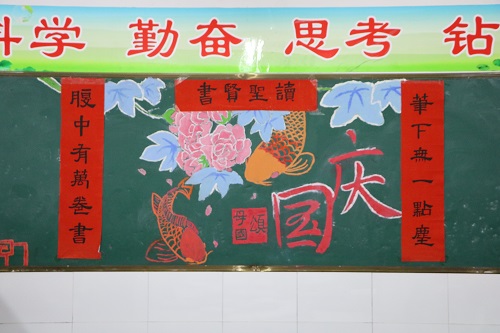 科学 勤奋 思考 钻
讀聖賢書
筆下無一點塵
腹中有萬卷書
国庆